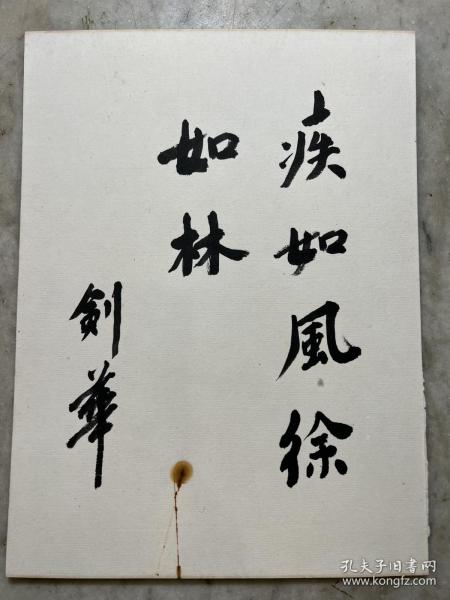 疾如風徐
如林
劍華
孔夫子旧书网
www.kongfz.com